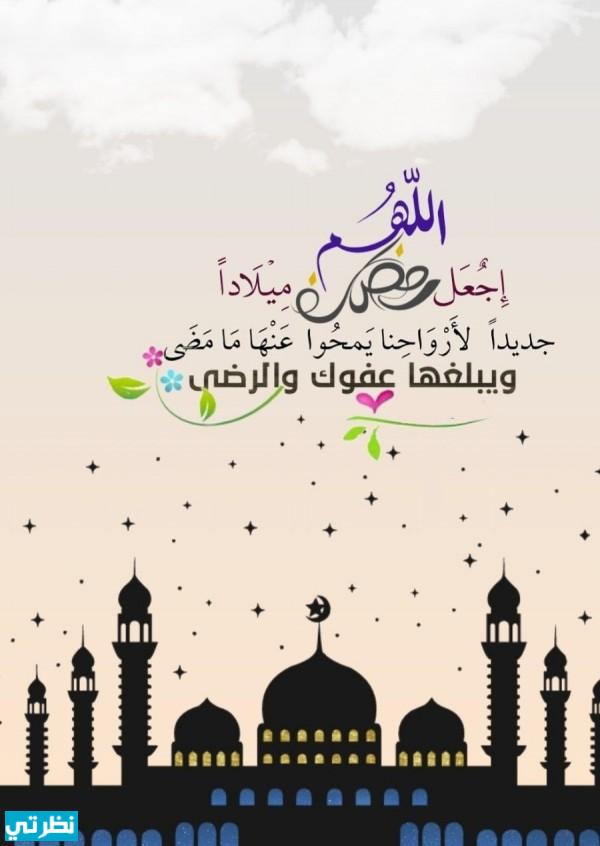 اللّهُم
إِجْعَل رمضان مِيْلَاداً
جديداً لأَرْوَاحِنا يَمحُوا عَنْهَا مَا مَضَى
ويبلغها عفوك والرضى
نظرتي